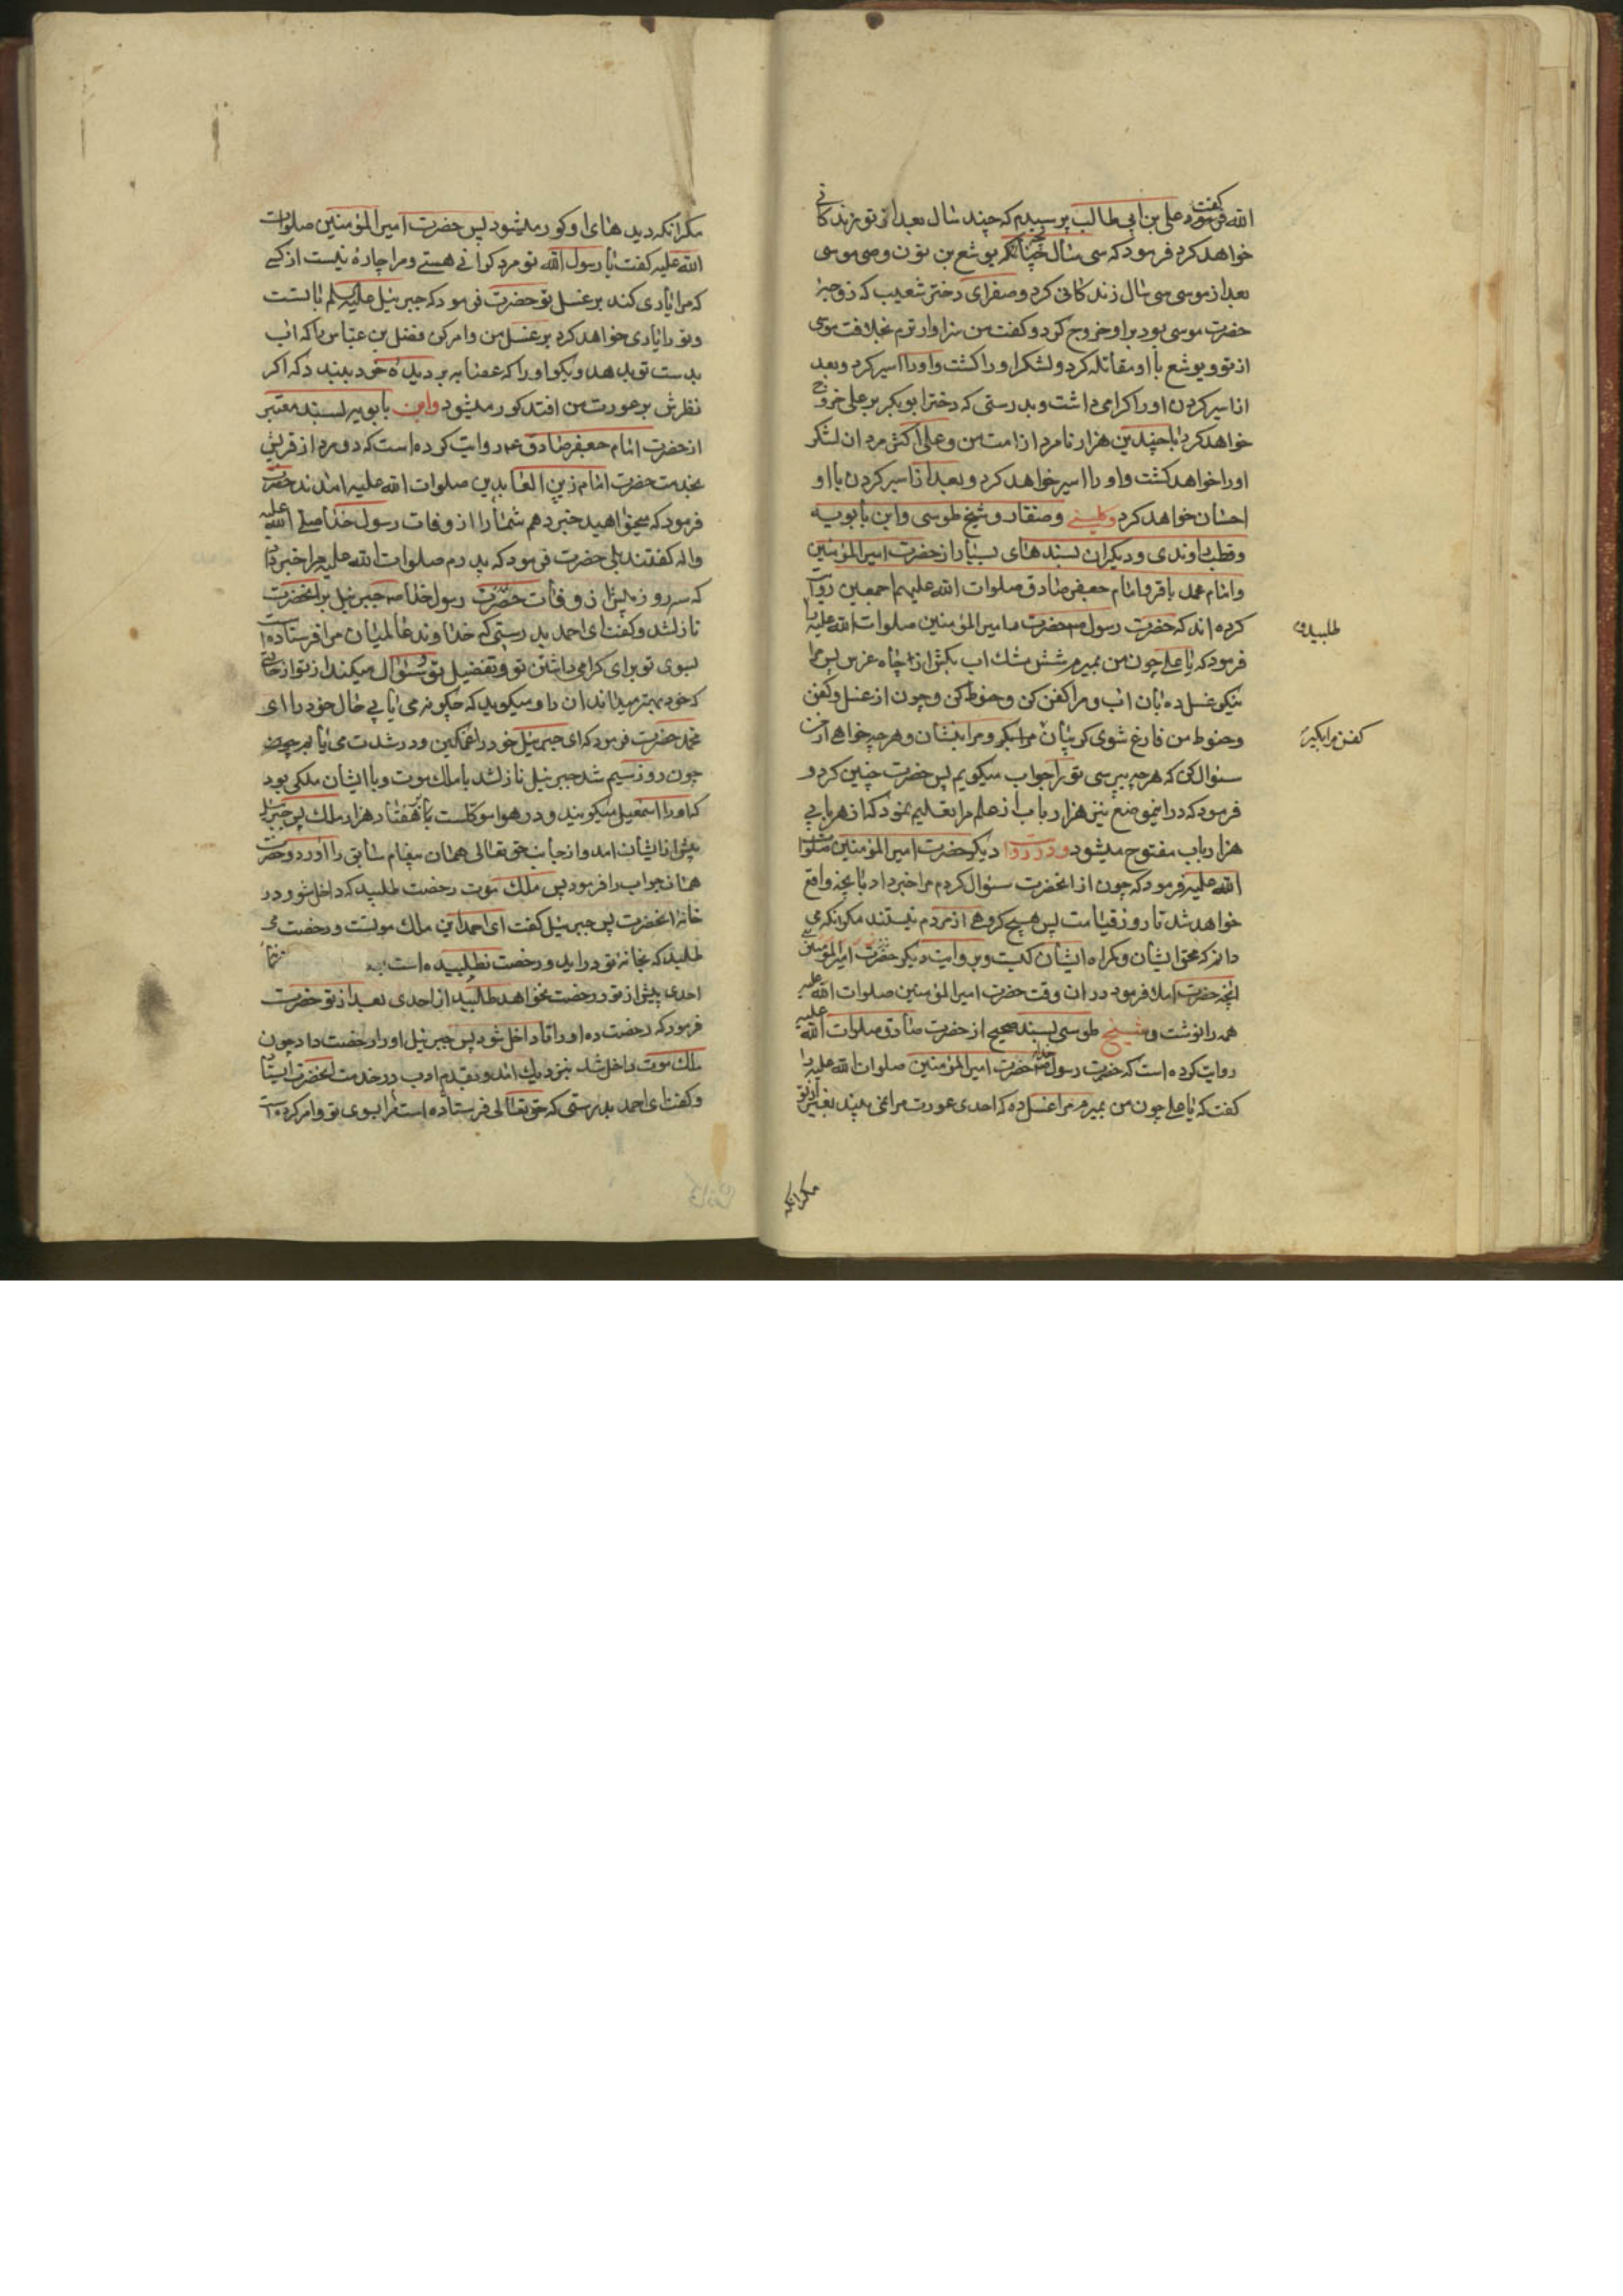 الله فرمود گفت علی بن ابی طالب پرسیدم که چند سال بعد از تو زندگانی
خواهد کرد فرمود که سی سال چنانکه یوشع بن نون وصی موسی
بعد از موسی سی سال زندگانی کرد و صفرای دختر شعیب که زوجهٔ
حضرت موسی بود بر او خروج کرد و گفت من سزاوارترم بخلافت موسی
از تو و یوشع با او مقاتله کرد و لشکر او را کشت و او را اسیر کرد و بعد
از اسیر کردن او را گرامی داشت و بدرستی که دختر ابو بکر بر علی خروج
خواهد کرد با چندین هزار نامرد از امت من و علی اکثر مردان لشکر
او را خواهد کشت و او را اسیر خواهد کرد و بعد از اسیر کردن با او
احسان خواهد کرد و کلینی و صفار و شیخ طوسی و ابن بابویه
و قطب راوندی و دیگران بسندهای بسیار از حضرت امیر المؤمنین
و امام محمد باقر و امام جعفر صادق صلوات الله علیهم اجمعین روایت
کرده اند که حضرت رسول ص حضرت امیر المؤمنین صلوات الله علیه را
طلبید و
فرمود که یا علی چون من بمیرم شش مشک آب بکش از چاه غرس پس مرا
نیکو غسل ده بآن آب و مرا کفن کن و حنوط کن و چون از غسل و کفن
و حنوط من فارغ شوی گریبان مرا بگیر و مرا بنشان و هر چه خواهی از من
کفن مرا بگیر
سئوال کن که هر چه بپرسی تو را جواب میگویم پس حضرت چنین کرد و
فرمود که در این موضع نیز هزار باب از علم مرا تعلیم نمود که از هر بابی
هزار باب مفتوح میشود و در روایت دیگر حضرت امیر المؤمنین صلوات
الله علیه فرمود که چون از انحضرت سئوال کردم مرا خبر داد بانچه واقع
خواهد شد تا روز قیامت پس هیچ گروهی از مردم نیستند مگر انکه می
دانم که محق ایشان و گمراه ایشان کیست و بروایت دیگر حضرت امیر المؤمنین
انچه حضرت املا فرمود در ان وقت حضرت امیر المؤمنین صلوات الله علیه
همه را نوشت و شیخ طوسی بسند صحیح از حضرت صادق صلوات الله علیه
روایت کرده است که حضرت رسول خدا ص حضرت امیر المؤمنین صلوات الله علیه را
گفت که یا علی چون من بمیرم مرا غسل ده که احدی عورت مرا نمی بیند بغیر از تو
مگر انکه
مگر انکه دیدهای او کور میشود پس حضرت امیر المؤمنین صلوات
الله علیه گفت یا رسول الله تو مرد گرانی هستی و مرا چاره نیست از کسی
که مرا یاری کند بر غسل تو حضرت فرمود که جبرئیل علیه السلم با تست
و تو را یاری خواهد کرد بر غسل من و امر کن فضل بن عباس را که آب
بدست تو بدهد و بگو او را که عصابه بر دیدهٔ خود ببندد که اگر
نظرش بر عورت من افتد کور میشود و ابن بابویه بسند معتبر
از حضرت امام جعفر صادق ع روایت کرده است که دو مرد از قریش
بخدمت حضرت امام زین العابدین صلوات الله علیه امدند حضرت
فرمود که میخواهید خبر دهم شما را از وفات رسول خدا صلی الله علیه
واله گفتند بلی حضرت فرمود که پدرم صلوات الله علیه مرا خبر داد
که سه روز پیش از وفات حضرت رسول خدا ص جبرئیل بر انحضرت
نازل شد و گفت ای احمد بدرستی که خداوند عالمیان مرا فرستاده است
بسوی تو برای گرامی داشتن تو و تفضیل تو و سئوال میکند از تو از حالی
که خود بهتر میداند ان را و میگوید که چگونه می یابی حال خود را ای
محمد حضرت فرمود که ای جبرئیل خود را غمگین و در شدت می یابم چون
چون روز سیم شد جبرئیل نازل شد با ملک موت و با ایشان ملکی بود
که او را اسمعیل میگویند و در هوا موکلست با هفتاد هزار ملک پس جبرئیل
پیش از ایشان امد و از جانب حق تعالی همان پیغام سابق را آورد و حضرت
همان جواب را فرمود پس ملک موت رخصت طلبید که داخل شود در
خانهٔ انحضرت پس جبرئیل گفت ای احمد این ملک موتست و رخصت می
طلبد که بخانه تو در اید و رخصت نطلبیده است از
احدی پیش از تو و رخصت نخواهد طلبید از احدی بعد از تو حضرت
فرمود که رخصت ده او را تا داخل شود پس جبرئیل او را رخصت داد چون
ملک موت داخل شد بنزدیک امد و بقدم ادب در خدمت انحضرت ایستاد
و گفت ای احمد بدرستی که حق تعالی فرستاده است مرا بسوی تو و امر کرده است